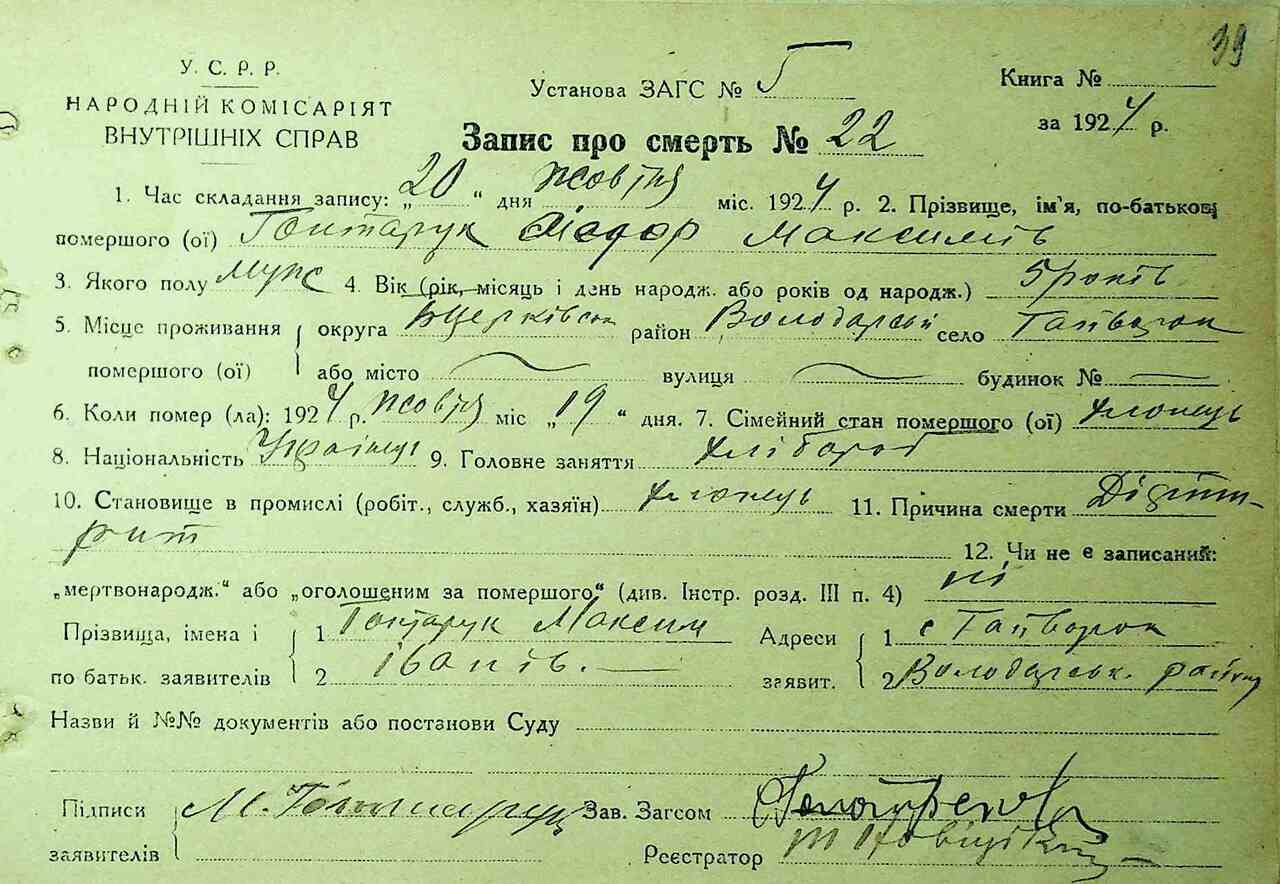 39
У. С. Р. Р.
НАРОДНІЙ КОМІСАРІЯТ
ВНУТРІШНІХ СПРАВ
Установа ЗАГС №
Книга №
за 1924 р.
Запис про смерть № 22
1. Час складання запису: „20“ дня жовтня міс. 1924 р. 2. Прізвище, ім'я, по-батькові
помершого (ої) Гонтарук Федор Максимів
3. Якого полу Муж 4. Вік (рік, місяць і день народж. або років од народж.) 5 років
5. Місце проживання помершого (ої) округа Бцерківськ район Володарськ село Гайворон
або місто вулиця будинок №
6. Коли помер (ла): 1924 р. жовтня міс „19“ дня. 7. Сімейний стан помершого (ої) хлопець
8. Національність Українець 9. Головне заняття хлібороб
10. Становище в промислі (робіт., служб., хазяїн) хлопець 11. Причина смерти
12. Чи не є записаний:
„мертвонародж.“ або „оголошеним за помершого“ (див. Інстр. розд. III п. 4) ні
Прізвища, імена і по батьк. заявителів 1 Гонтарук Максим Адреси заявит. 1 с Гайворон
2 Іванів. 2 Володарськ. району
Назви й №№ документів або постанови Суду
Підписи заявителів М. Гонтарук Зав. Загсом
Реєстратор